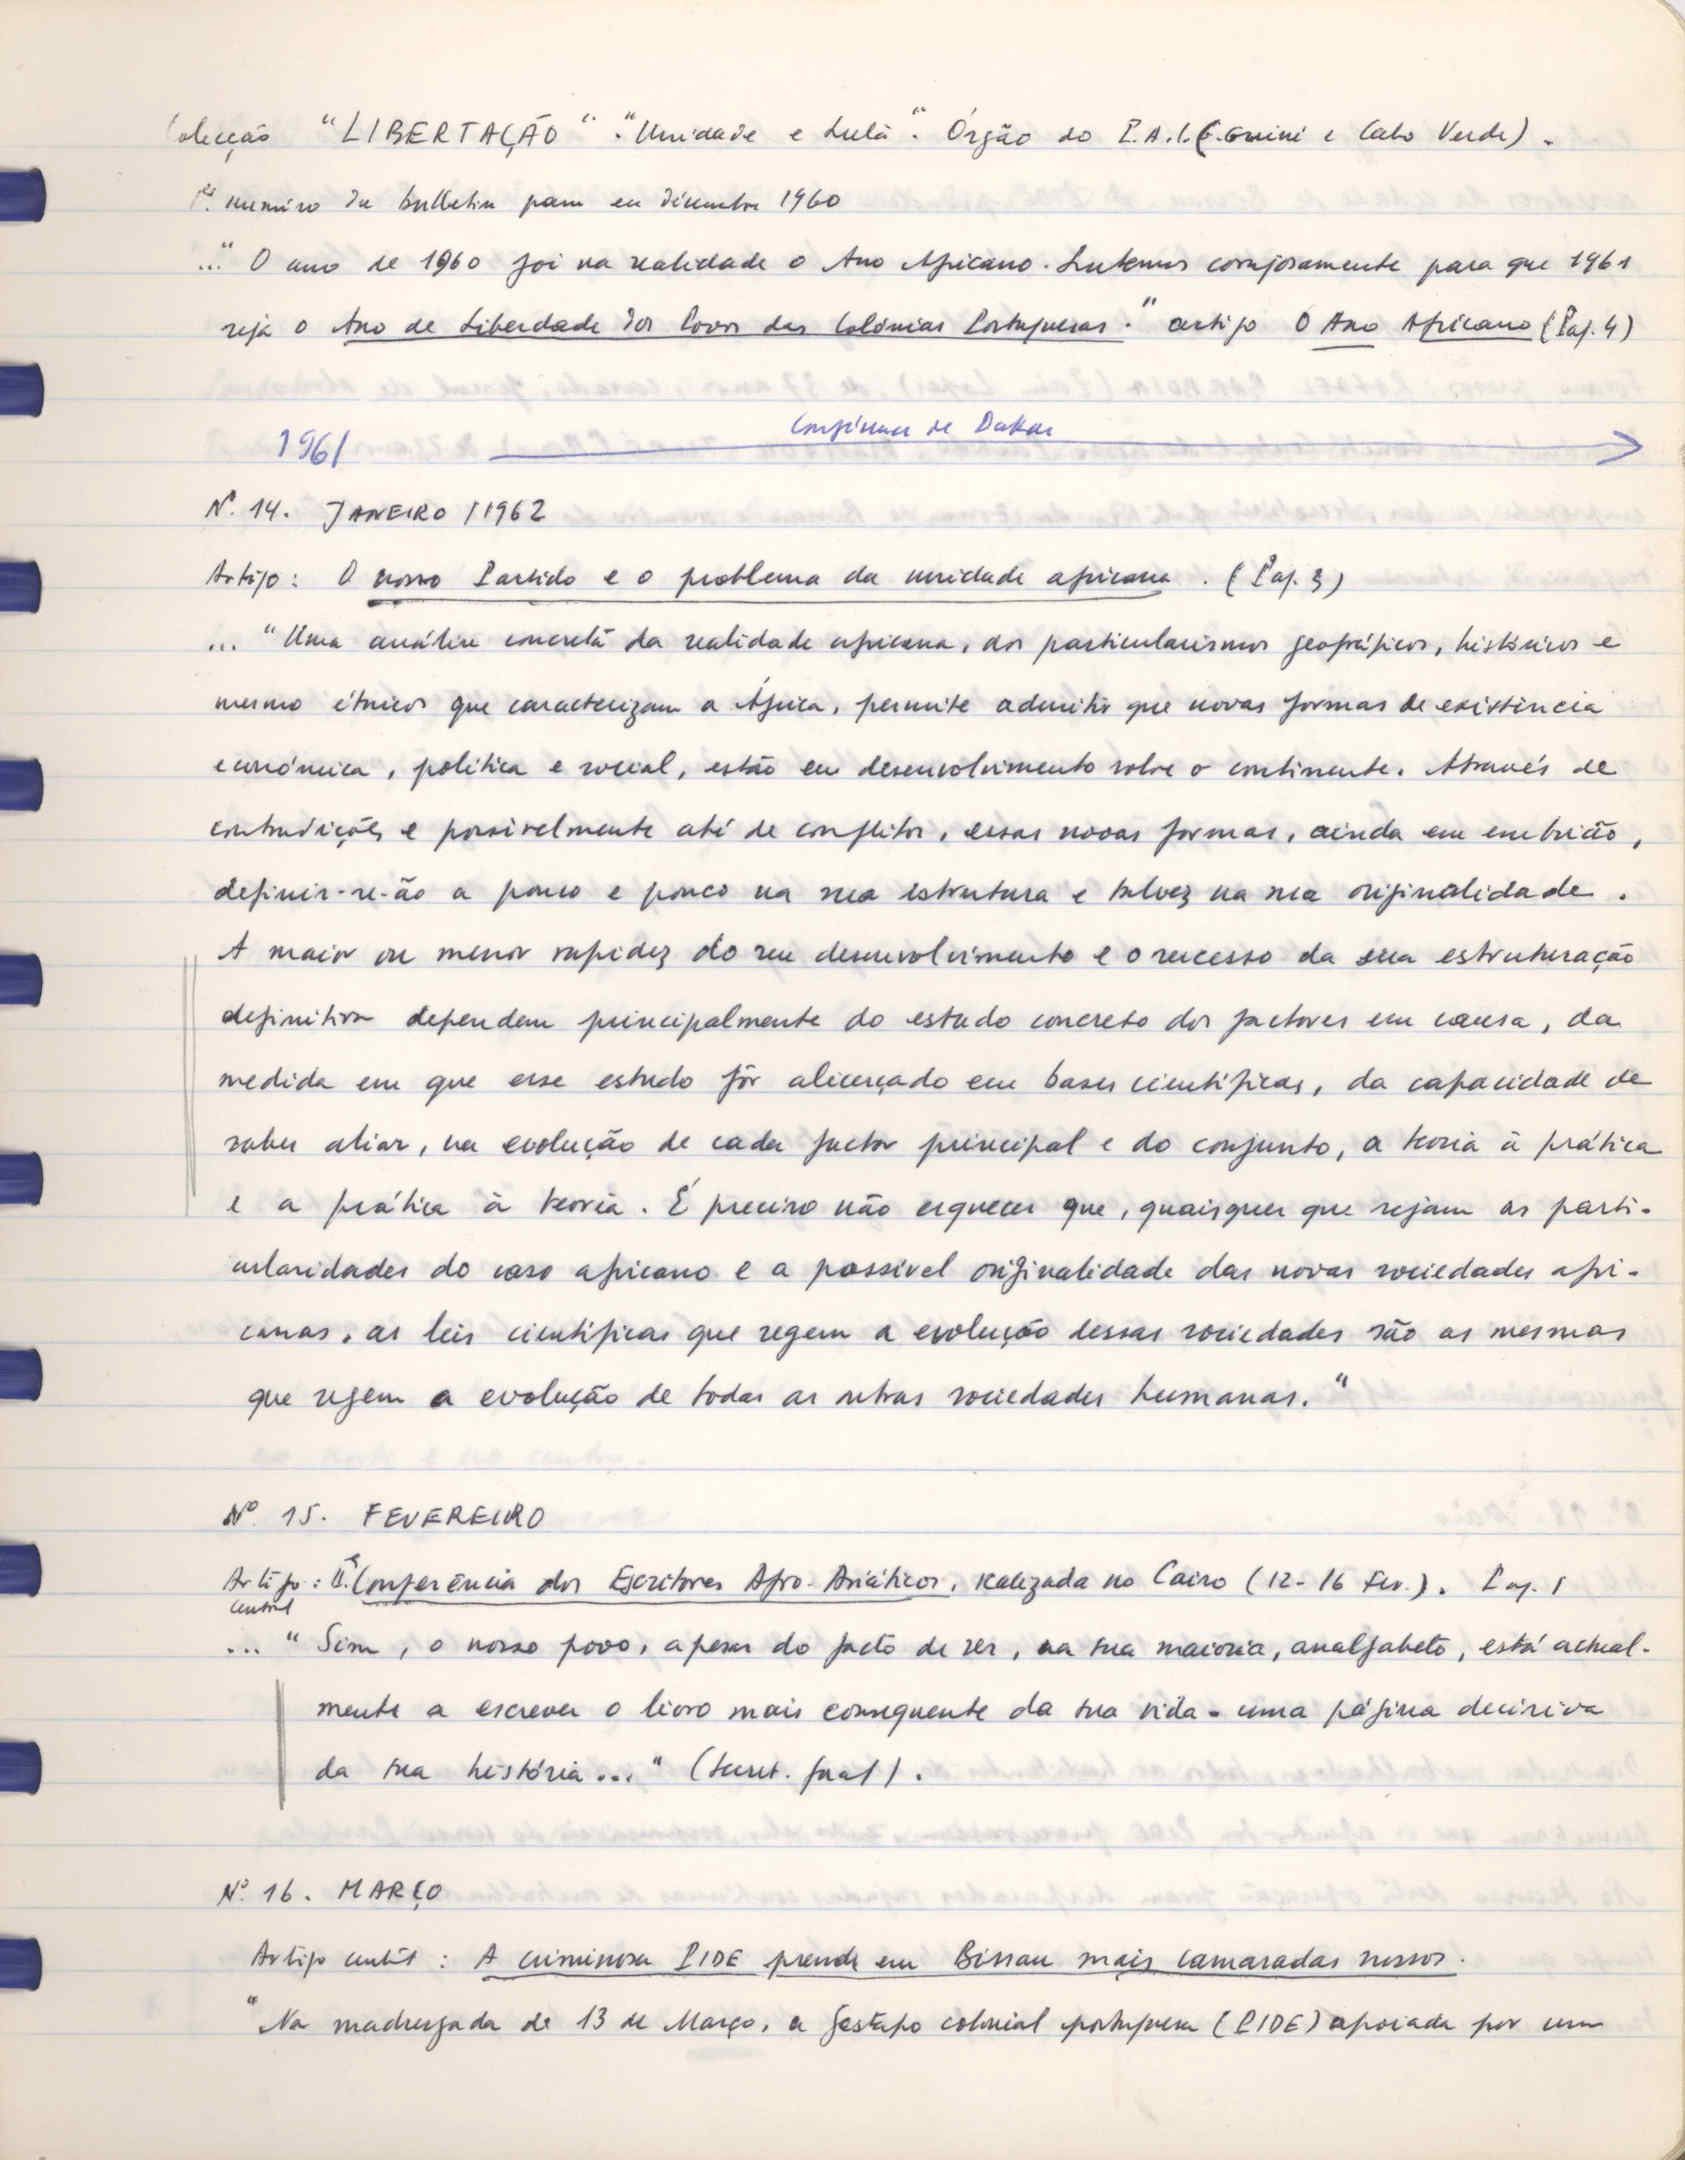 Colecção "LIBERTAÇÃO". "Unidade e Luta". Órgão do P.A.I. (G. Guiné e Cabo Verde).
1er numéro du bulletin paru en décembre 1960
..." O ano de 1960 foi na realidade o Ano Africano. Lutemos corajosamente para que 1961
seja o Ano de Liberdade dos Povos das Colónias Portuguesas." artigo O Ano Africano (Pag. 4)
1961 Conférence de Dakar
Nº. 14. JANEIRO / 1962
Artigo: O nosso Partido e o problema da unidade africana. (Pag. 3)
... "Uma análise concreta da realidade africana, dos particularismos geográficos, históricos e
mesmo étnicos que caracterizam a África, permite admitir que novas formas de existência
económica, política e social, estão em desenvolvimento sobre o continente. Através de
contradições e possivelmente até de conflitos, essas novas formas, ainda em embrião,
definir-se-ão a pouco e pouco na sua estrutura e talvez na sua originalidade.
A maior ou menor rapidez do seu desenvolvimento e o sucesso da sua estruturação
definitiva dependem principalmente do estudo concreto dos factores em causa, da
medida em que esse estudo fôr alicerçado em bases científicas, da capacidade de
saber aliar, na evolução de cada factor principal e do conjunto, a teoria à prática
e a prática à teoria. É preciso não esquecer que, quaisquer que sejam as parti-
cularidades do caso africano e a possivel originalidade das novas sociedades afri-
canas, as leis científicas que regem a evolução dessas sociedades são as mesmas
que regem a evolução de todas as outras sociedades humanas."
Nº 15. FEVEREIRO
Artigo: IIª. Conferência dos Escritores Afro-Asiáticos, realizada no Cairo (12-16 Fev.). Pag. 1
central
... "Sim, o nosso povo, apesar do facto de ser, na sua maioria, analfabeto, está actual-
mente a escrever o livro mais consequente da sua vida - uma página decisiva
da sua história..." (Secret. Geral).
Nº. 16. MARÇO
Artigo central: A criminosa PIDE prende em Bissau mais camaradas nossos.
"Na madrugada de 13 de Março, a Gestapo colonial portuguesa (PIDE) apoiada por um